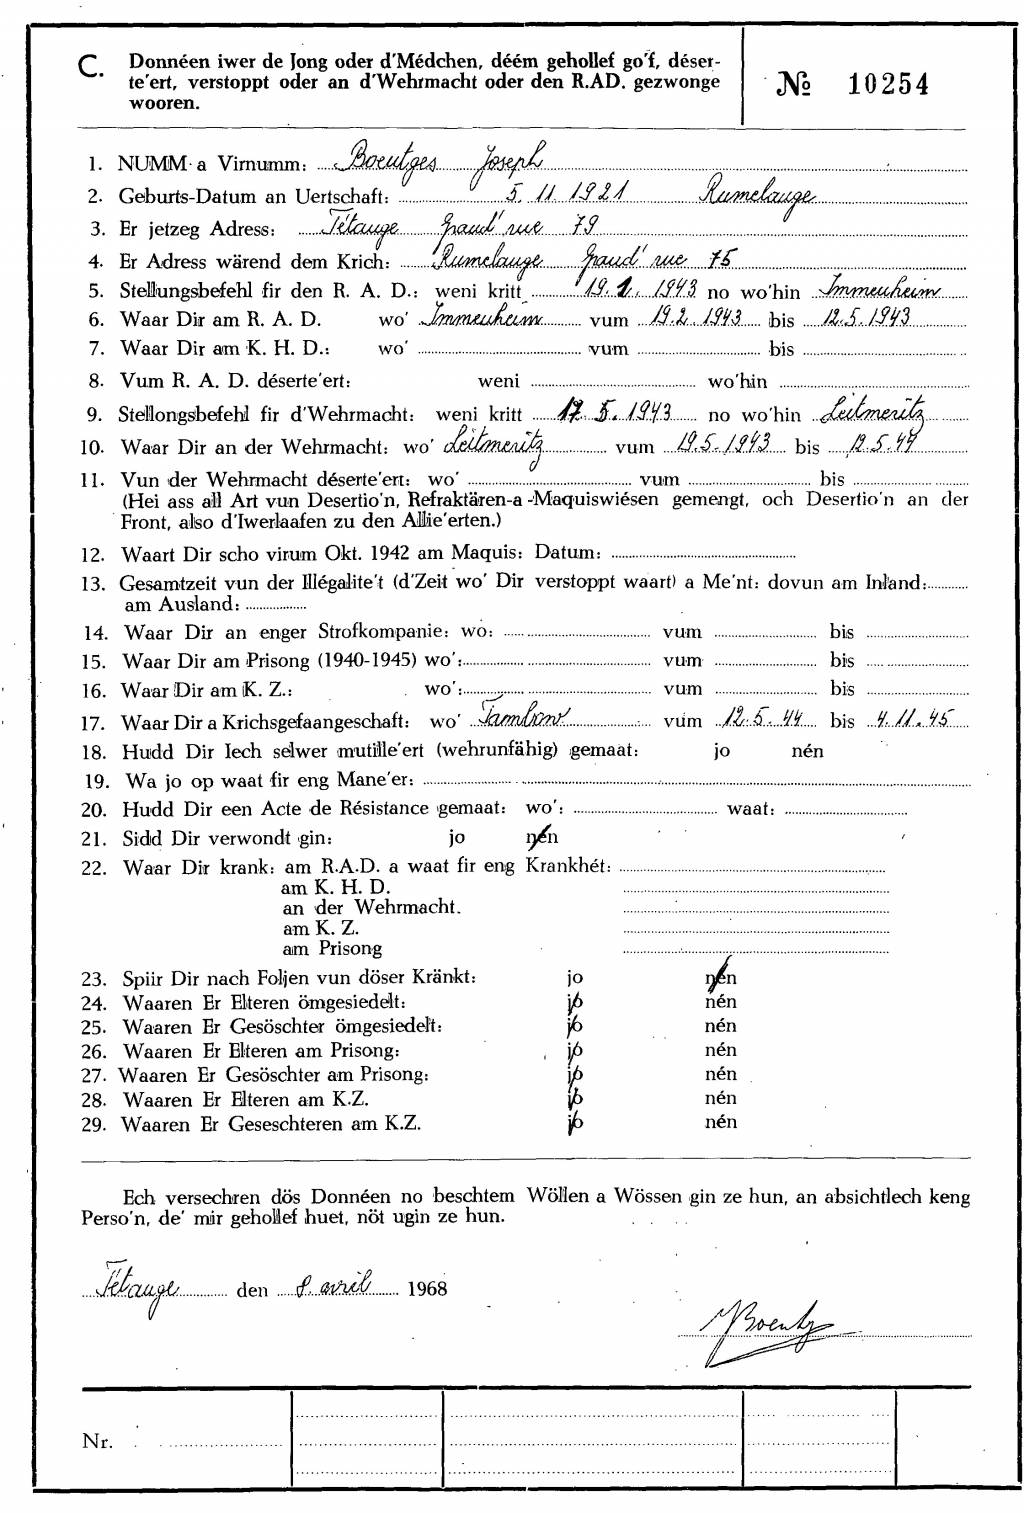 C. Donnéen iwer de Jong oder d'Médchen, déém gehollef go'f, déser-
te'ert, verstoppt oder an d'Wehrmacht oder den R.AD. gezwonge
wooren.
№ 10254
1. NUMM a Virnumm: Boentges Joseph
2. Geburts-Datum an Uertschaft: 5. 11. 1921 Rumelange
3. Er jetzeg Adress: Tétange Grand' rue 79
4. Er Adress wärend dem Krich: Rumelange Grand' rue 75
5. Stellungsbefehl fir den R. A. D.: weni kritt 19. 1. 1943 no wo'hin Immenheim
6. Waar Dir am R. A. D. wo' Immenheim vum 19.2.1943 bis 12.5.1943
7. Waar Dir am K. H. D.: wo' vum bis
8. Vum R. A. D. déserte'ert: weni wo'hin
9. Stellongsbefehl fir d'Wehrmacht: weni kritt 17. 5. 1943 no wo'hin Leitmeritz
10. Waar Dir an der Wehrmacht: wo' Leitmeritz vum 19.5.1943 bis 12.5.44
11. Vun der Wehrmacht déserte'ert: wo' vum bis
(Hei ass all Art vun Desertio'n, Refraktären-a -Maquiswiésen gemengt, och Desertio'n an der
Front, also d'Iwerlaafen zu den Allie'erten.)
12. Waart Dir scho virum Okt. 1942 am Maquis: Datum:
13. Gesamtzeit vun der Illégalite't (d'Zeit wo' Dir verstoppt waart) a Me'nt: dovun am Inland:
am Ausland:
14. Waar Dir an enger Strofkompanie: wo: vum bis
15. Waar Dir am Prisong (1940-1945) wo': vum bis
16. Waar Dir am K. Z.: wo': vum bis
17. Waar Dir a Krichsgefaangeschaft: wo' Tambow vum 12.5.44 bis 4.11.45
18. Hudd Dir Iech selwer mutille'ert (wehrunfähig) gemaat: jo nén
19. Wa jo op waat fir eng Mane'er:
20. Hudd Dir een Acte de Résistance gemaat: wo': waat:
21. Sidd Dir verwondt gin: jo nén
22. Waar Dir krank: am R.A.D. a waat fir eng Krankhét:
am K. H. D.
an der Wehrmacht.
am K. Z.
am Prisong
23. Spiir Dir nach Foljen vun döser Kränkt: jo nén
24. Waaren Er Elteren ömgesiedelt: jo nén
25. Waaren Er Gesöschter ömgesiedelt: jo nén
26. Waaren Er Elteren am Prisong: jo nén
27. Waaren Er Gesöschter am Prisong: jo nén
28. Waaren Er Elteren am K.Z. jo nén
29. Waaren Er Geseschteren am K.Z. jo nén
Ech versechren dös Donnéen no beschtem Wöllen a Wössen gin ze hun, an absichtlech keng
Perso'n, de' mir gehollef huet, nöt ugin ze hun.
Tétange den 8. avril 1968
JBoentg
Nr.